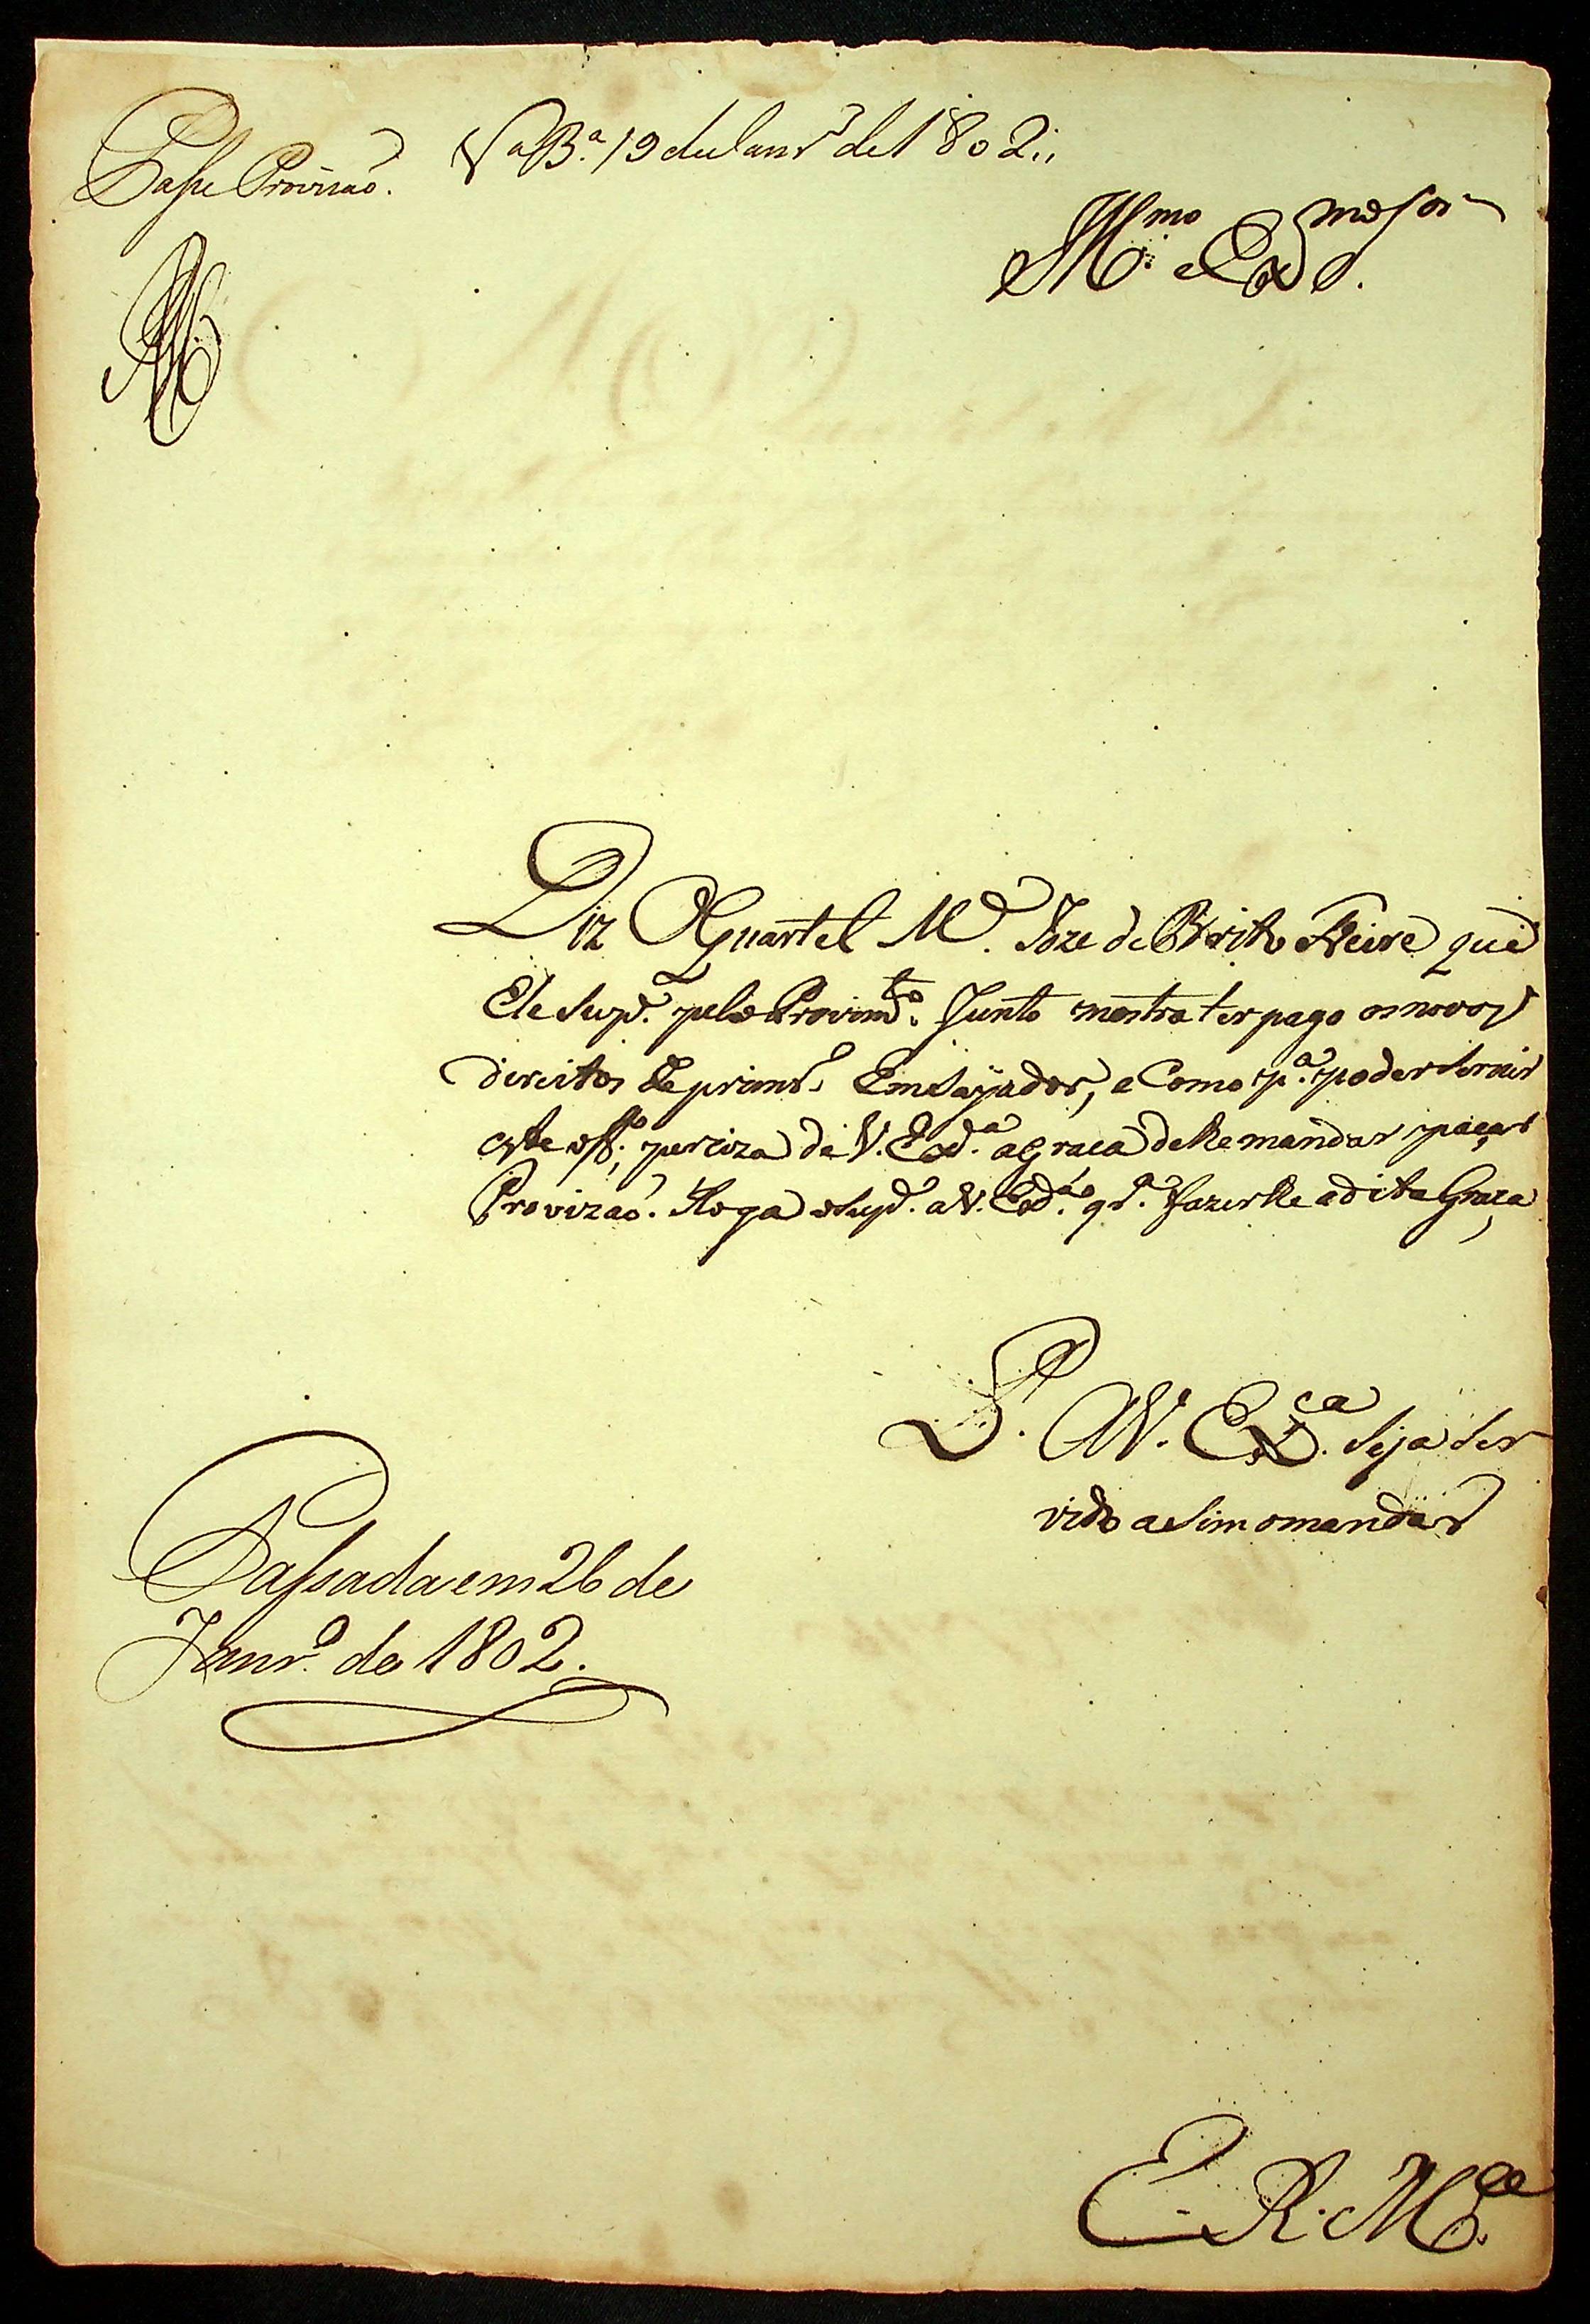 Passe Provizaõ. Va Ba. 19 de Janr.o de 1802 ,,
Ill.mo e Ex.mo Sor
Diz O Quartel M.e Joze de Brito Freire que
Ele Sup.e pelo Provim.to Junto mostra ter pago os novos
direitos de prim.ro Emsayador, e Como p.a poder servir
este off.o, perciza de V. Ex.a a graca de lhe mandar paçar
Provizaõ. Roga o Sup.e a V. Ex.a q.r fazer lhe a dita Graça
P. A V. Ex.ca Seja Ser
vido asim o mandar
Passada em 26 de
Janr.o de 1802.
E. R. M.ce